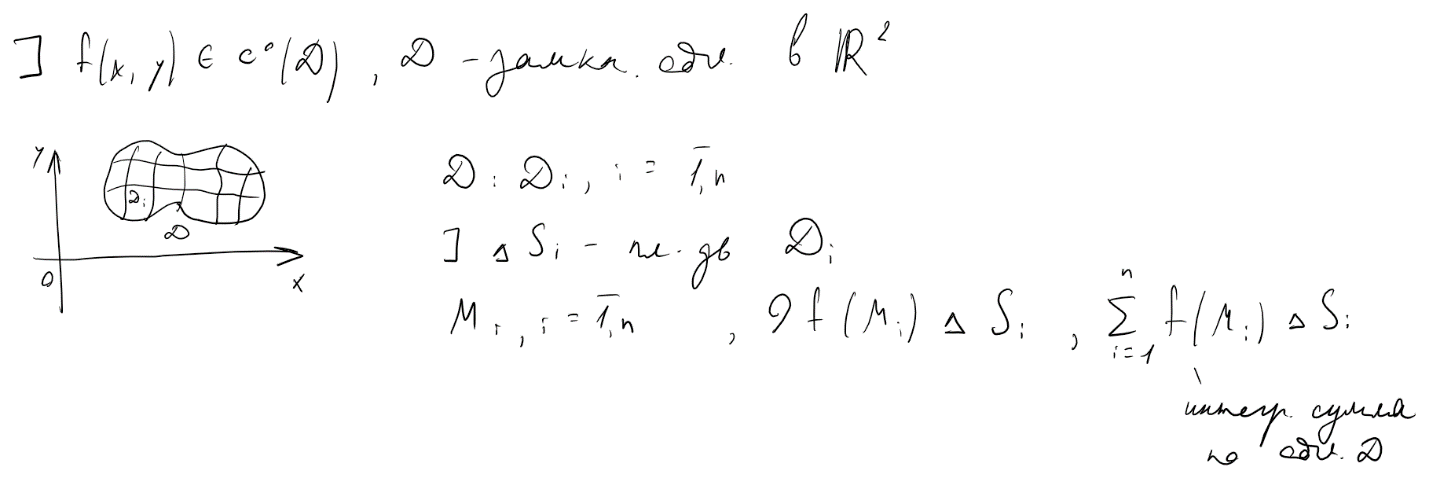 ] f(x, y) ∈ C°(D), D - замкн. обл. в ℝ²
y
D : Dᵢ, i = 1,n
Dᵢ
D
] Δ Sᵢ - пл-дь Dᵢ
0
x
Mᵢ, i = 1,n , f(Mᵢ) Δ Sᵢ , n ∑ i=1 f(Mᵢ) Δ Sᵢ
интегр. сумма
по обл. D